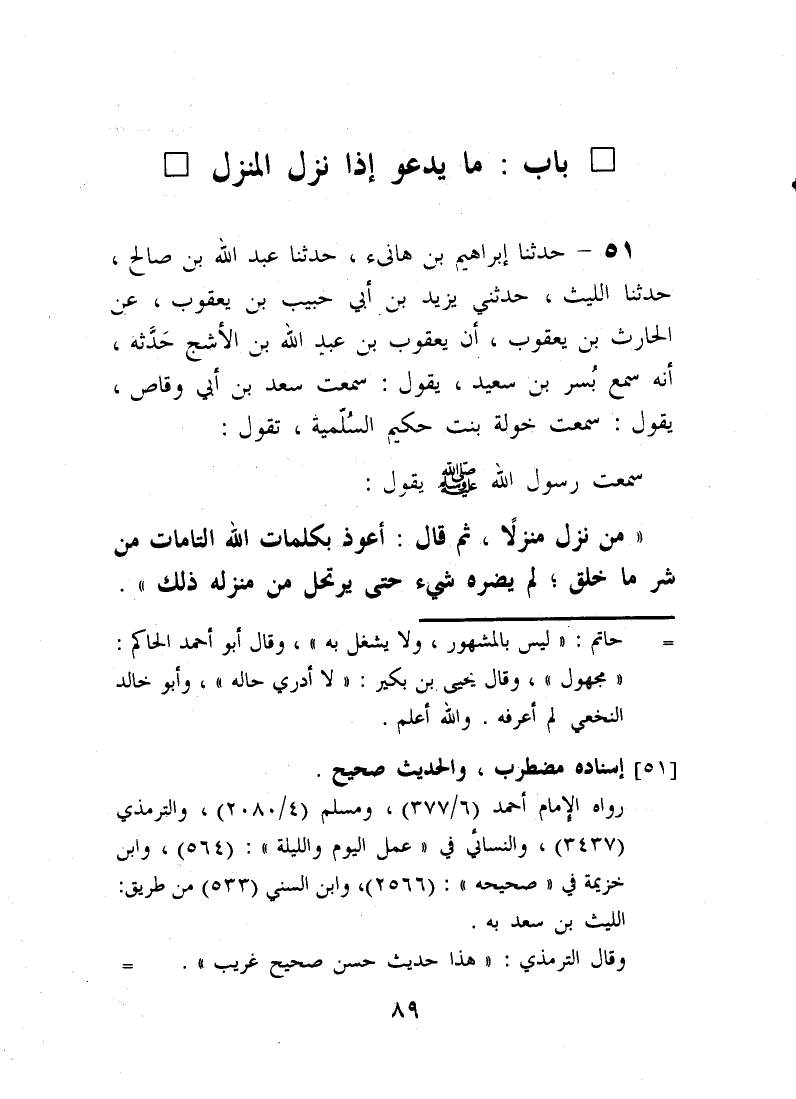 □ باب : ما يدعو إذا نزل المنزل □
٥١ – حدثنا إبراهيم بن هانىء ، حدثنا عبد الله بن صالح ،
حدثنا الليث ، حدثني يزيد بن أبي حبيب بن يعقوب ، عن
الحارث بن يعقوب ، أن يعقوب بن عبد الله بن الأشج حَدَّثه ،
أنه سمع بُسر بن سعيد ، يقول : سمعت سعد بن أبي وقاص ،
يقول : سمعت خولة بنت حكيم السُلّمية ، تقول :
سمعت رسول الله ﷺ يقول :
« من نزل منزلًا ، ثم قال : أعوذ بكلمات الله التامات من
شر ما خلق ؛ لم يضره شيء حتى يرتحل من منزله ذلك » .
= حاتم : « ليس بالمشهور ، ولا يشغل به » ، وقال أبو أحمد الحاكم :
« مجهول » ، وقال يحيى بن بكير : « لا أدري حاله » ، وأبو خالد
النخعي لم أعرفه . والله أعلم .
[٥١] إسناده مضطرب ، والحديث صحيح .
رواه الإمام أحمد (٣٧٧/٦) ، ومسلم (٢٠٨٠/٤) ، والترمذي
(٣٤٣٧) ، والنسائي في « عمل اليوم والليلة » : (٥٦٤) ، وابن
خزيمة في « صحيحه » : (٢٥٦٦)، وابن السني (٥٣٣) من طريق:
الليث بن سعد به .
وقال الترمذي : « هذا حديث حسن صحيح غريب » . =
٨٩